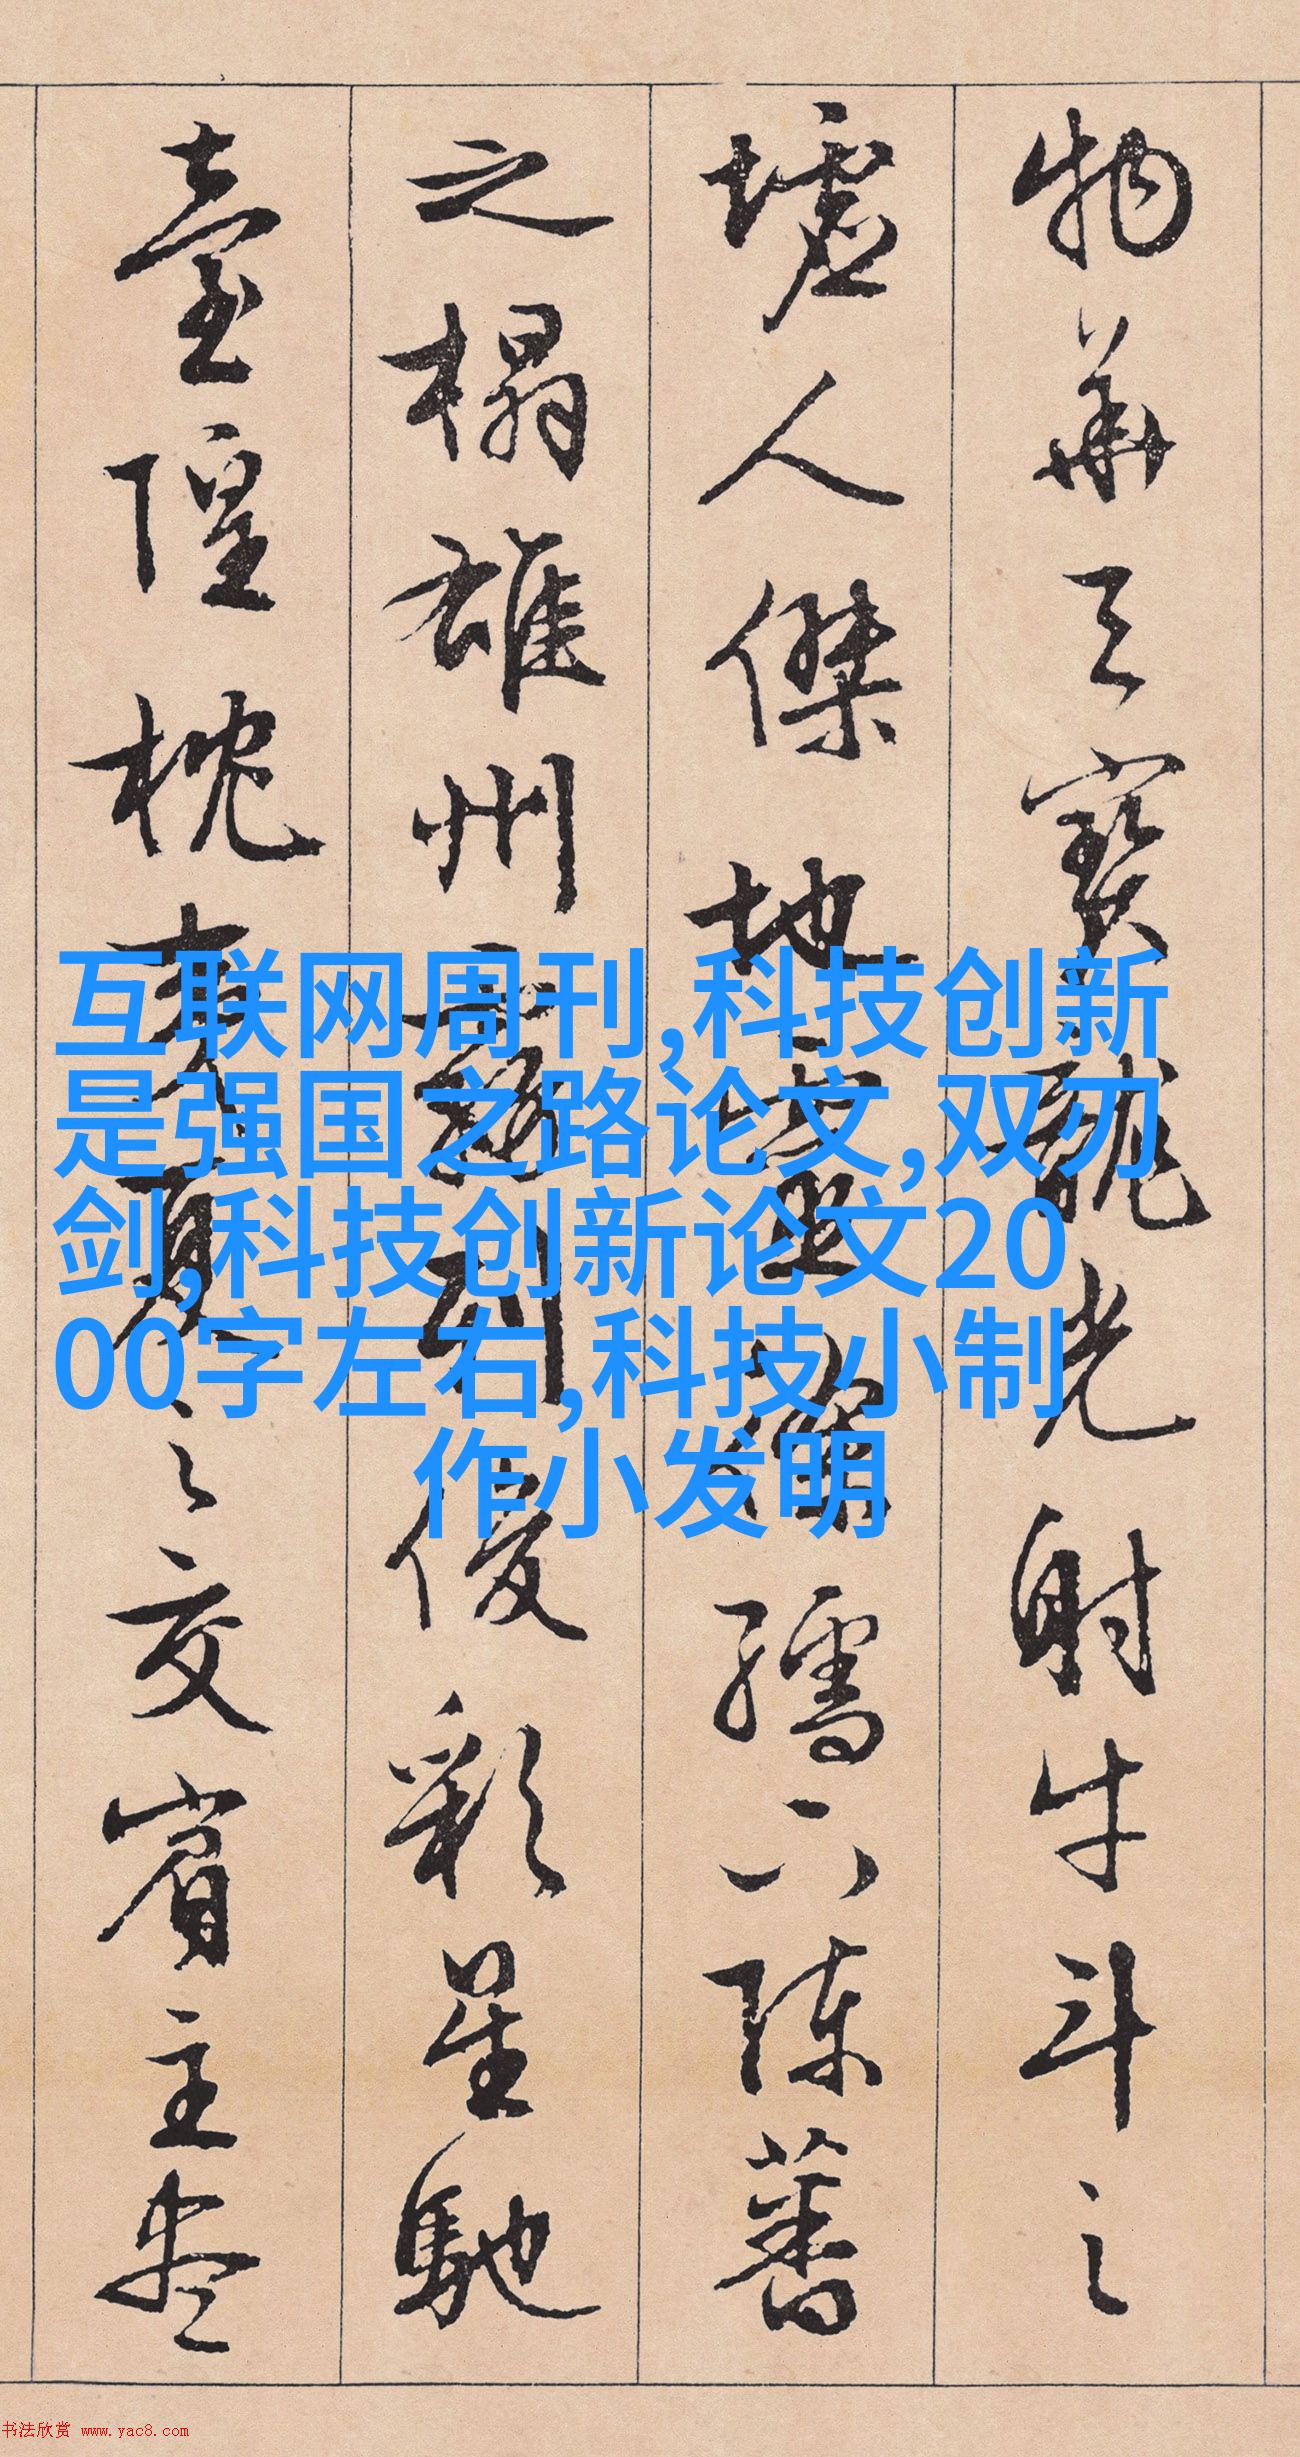 物華天寶龍光射牛斗之
墟人傑地靈徐孺下陳蕃
之榻雄州霧列俊彩星馳
臺隍枕夷夏之交賓主盡
互联网周刊,科技创新
是强国之路论文,双勿
剑,科技创新论文20
00字左右,科技小制
作小发明
书法欣赏 www.yac8.com